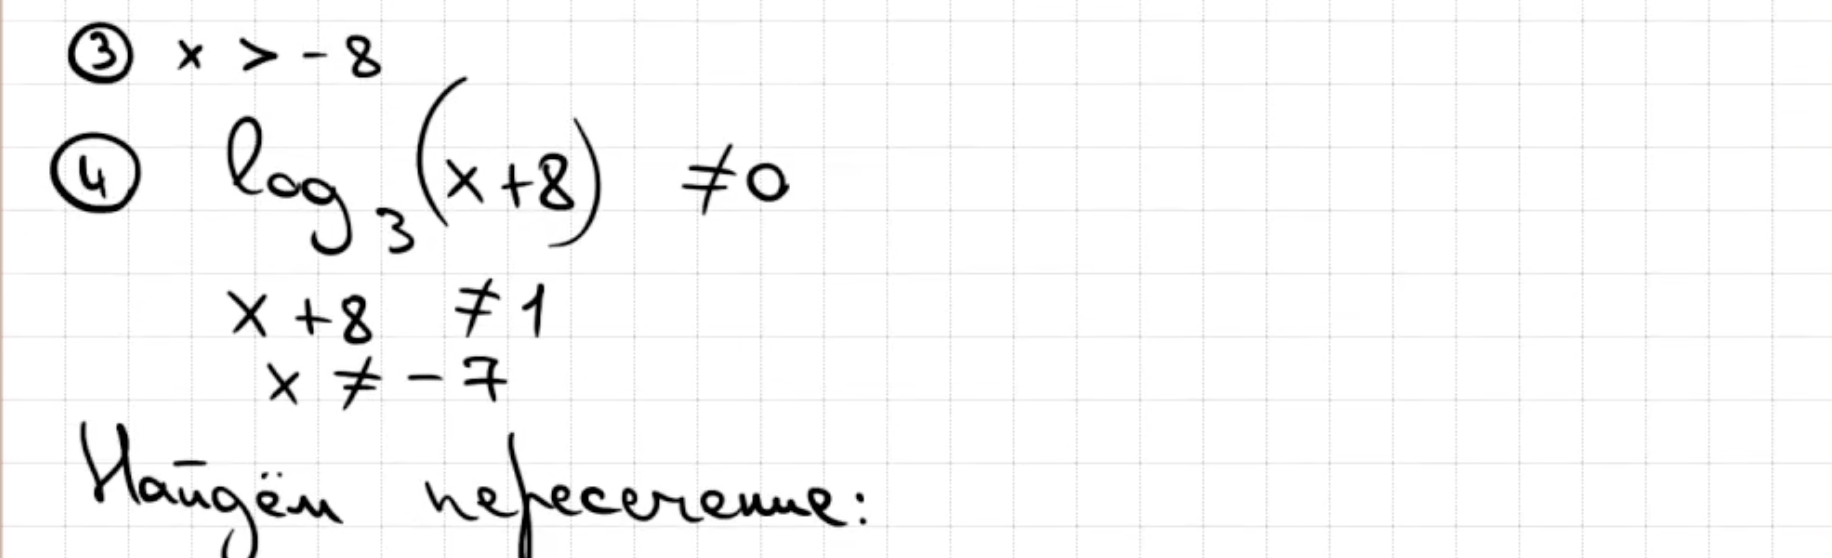 ③ x > -8
④ log₃(x+8) ≠0
x+8 ≠1
x ≠ -7
Найдём пересечение: